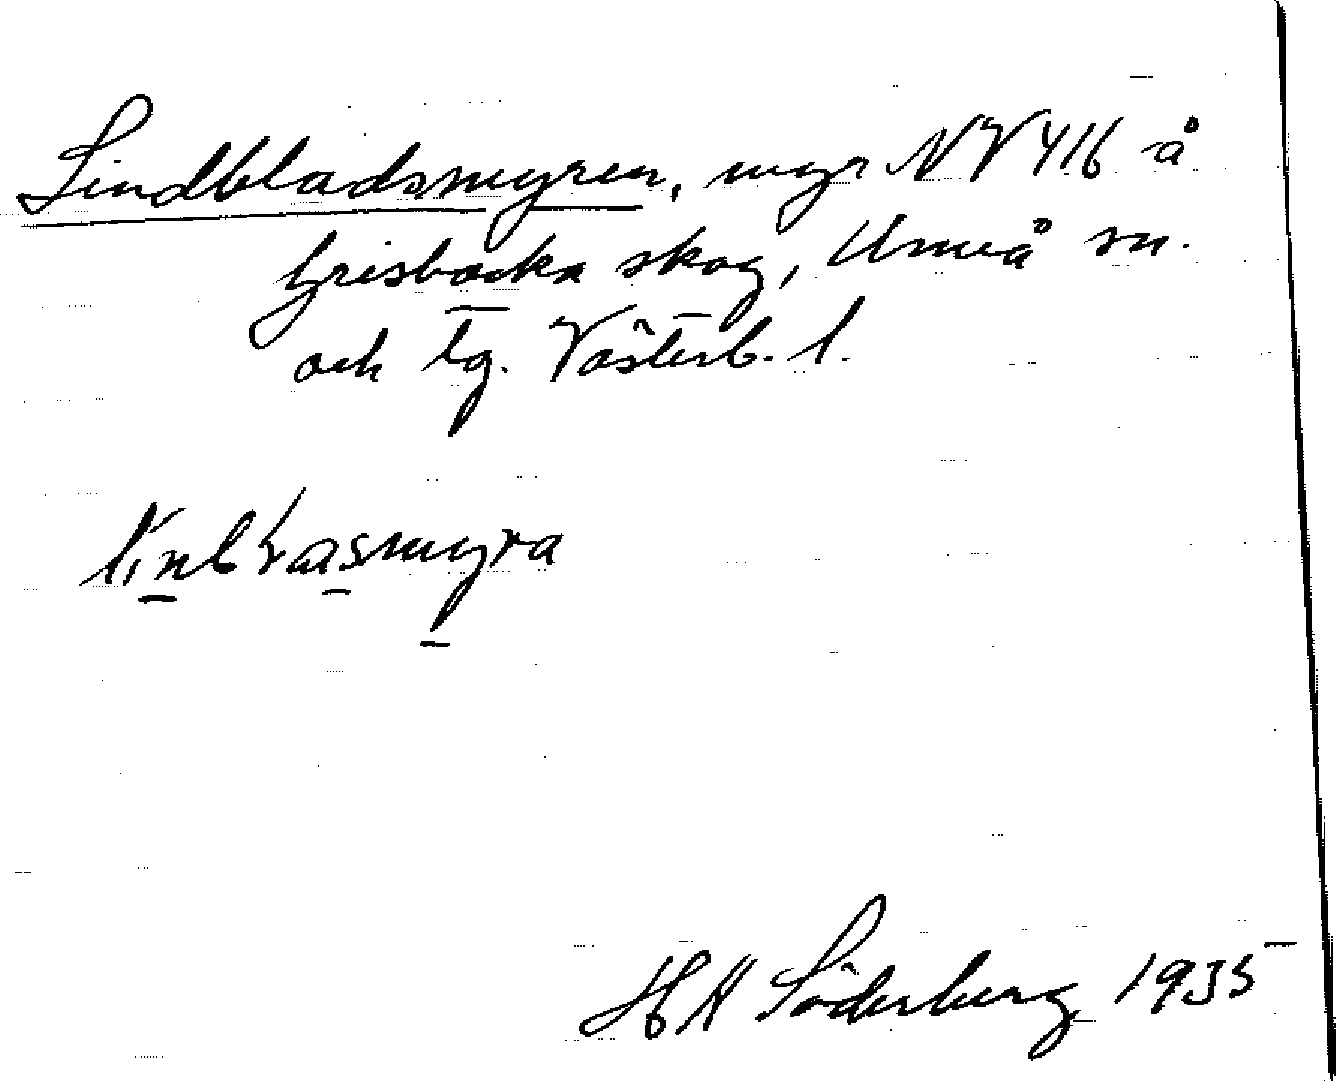 Lindbladsmyren, myr NV 416 å
Grisbacka skog, Umeå sn.
och tg. Västerb. l.
HH Söderberg 1935